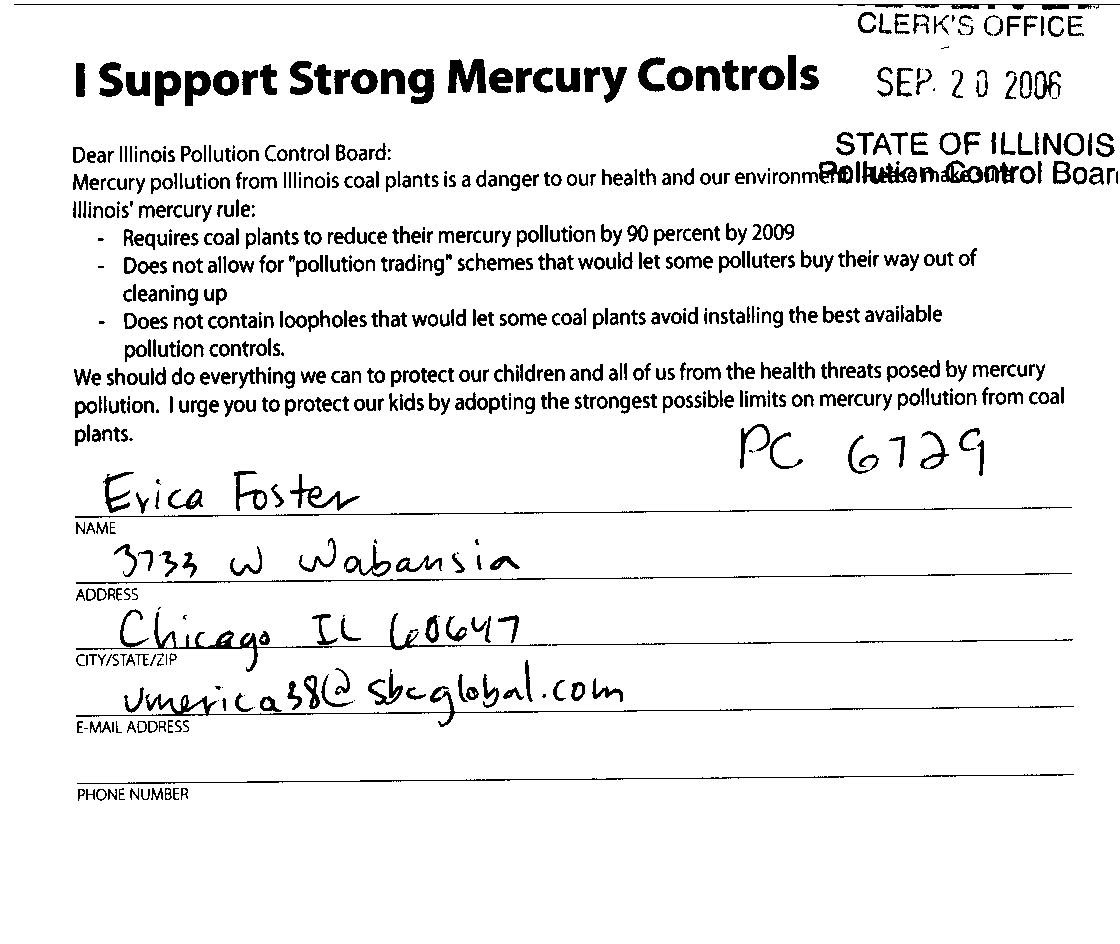 CLERK'S OFFICE
I Support Strong Mercury Controls
SEP. 20 2006
STATE OF ILLINOIS
Pollution Control Boar
Dear Illinois Pollution Control Board:
Mercury pollution from Illinois coal plants is a danger to our health and our environment. Please make sure
Illinois' mercury rule:
- Requires coal plants to reduce their mercury pollution by 90 percent by 2009
- Does not allow for "pollution trading" schemes that would let some polluters buy their way out of
cleaning up
- Does not contain loopholes that would let some coal plants avoid installing the best available
pollution controls.
We should do everything we can to protect our children and all of us from the health threats posed by mercury
pollution. I urge you to protect our kids by adopting the strongest possible limits on mercury pollution from coal
plants.
PC 6729
Erica Foster
NAME
3733 W Wabansia
ADDRESS
Chicago IL 60647
CITY/STATE/ZIP
umerica38@sbcglobal.com
E-MAIL ADDRESS
PHONE NUMBER